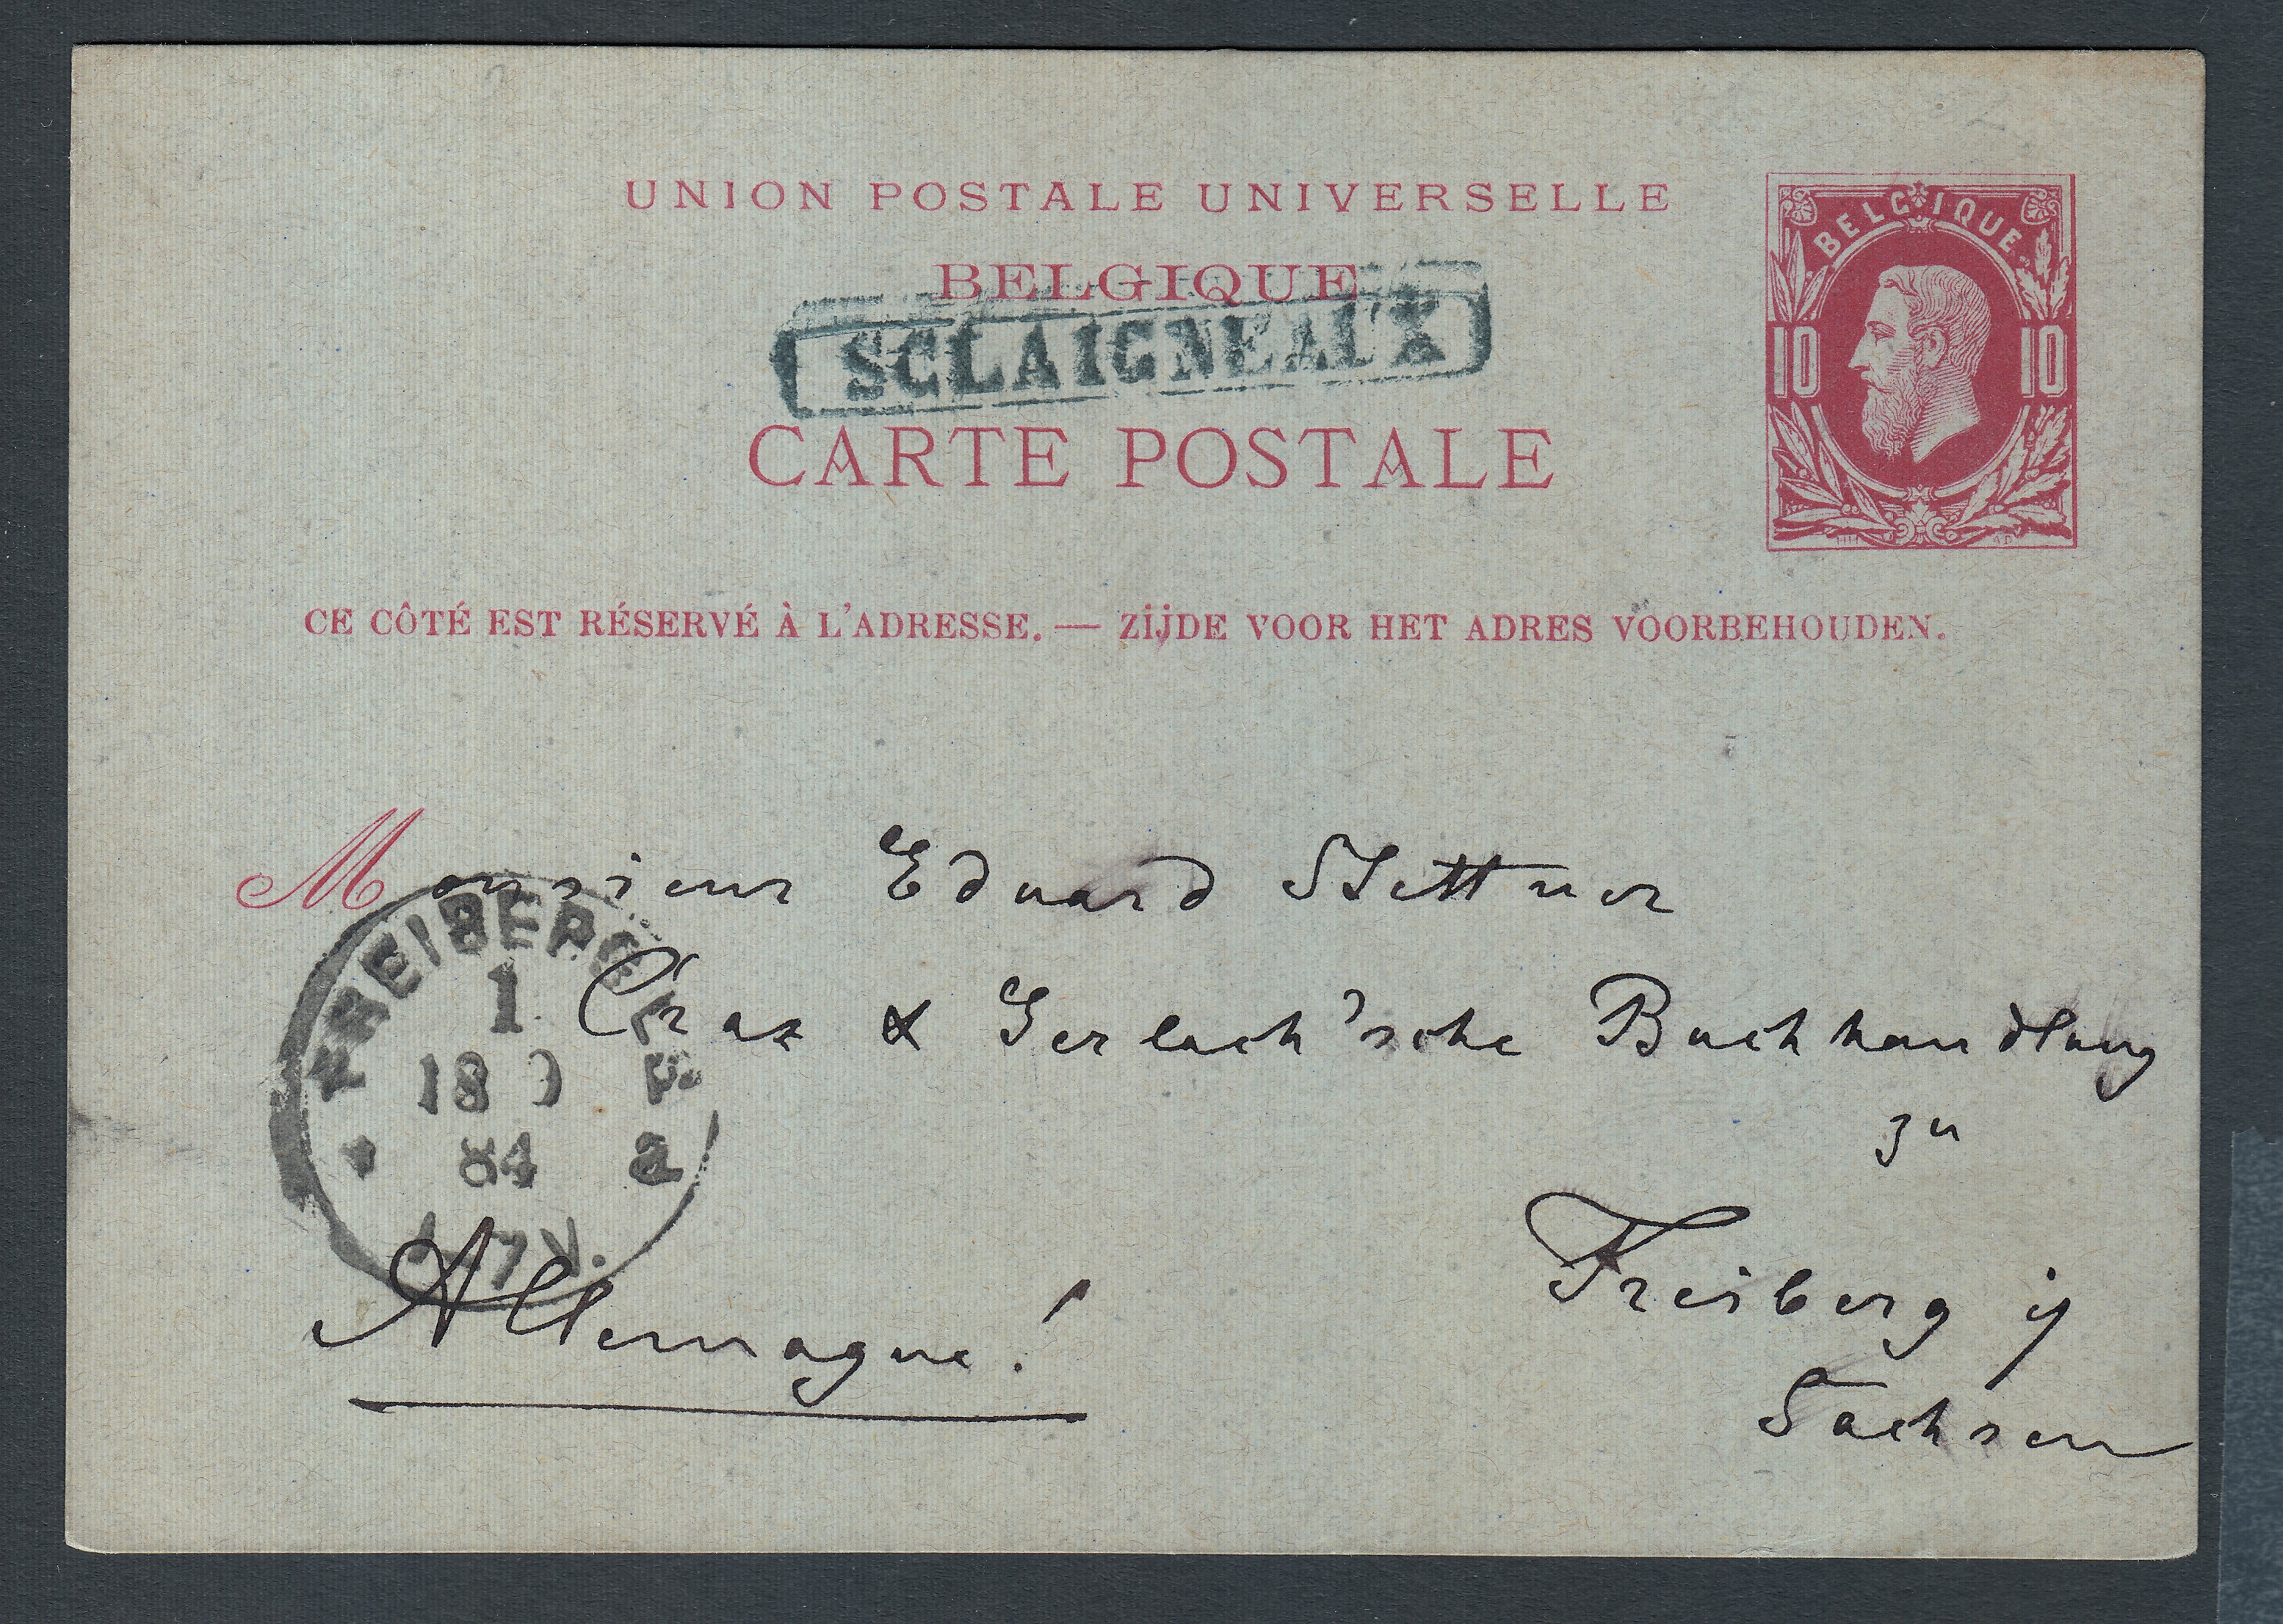 UNION POSTALE UNIVERSELLE
BELGIQUE
SCLAIGNEAUX
CARTE POSTALE
BELGIQUE
10 10
CE CÔTÉ EST RÉSERVÉ À L'ADRESSE. — ZIJDE VOOR HET ADRES VOORBEHOUDEN.
Monsieur Eduard Stettner
Craz & Gerlach'sche Buchhandlung
zu
Freiberg i/
Sachsen
Allemagne!
FREIBERG
1
18
84 a